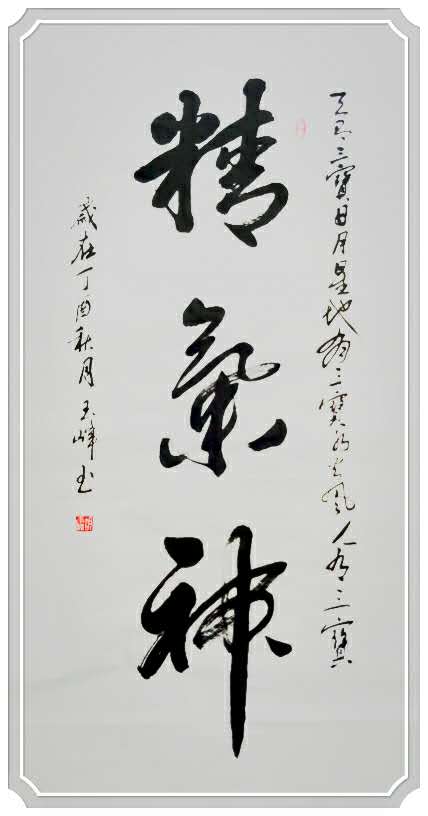 天有三寳日月星地有三寳水火風人有三寳
精氣神
歲在丁酉秋月玉峰書